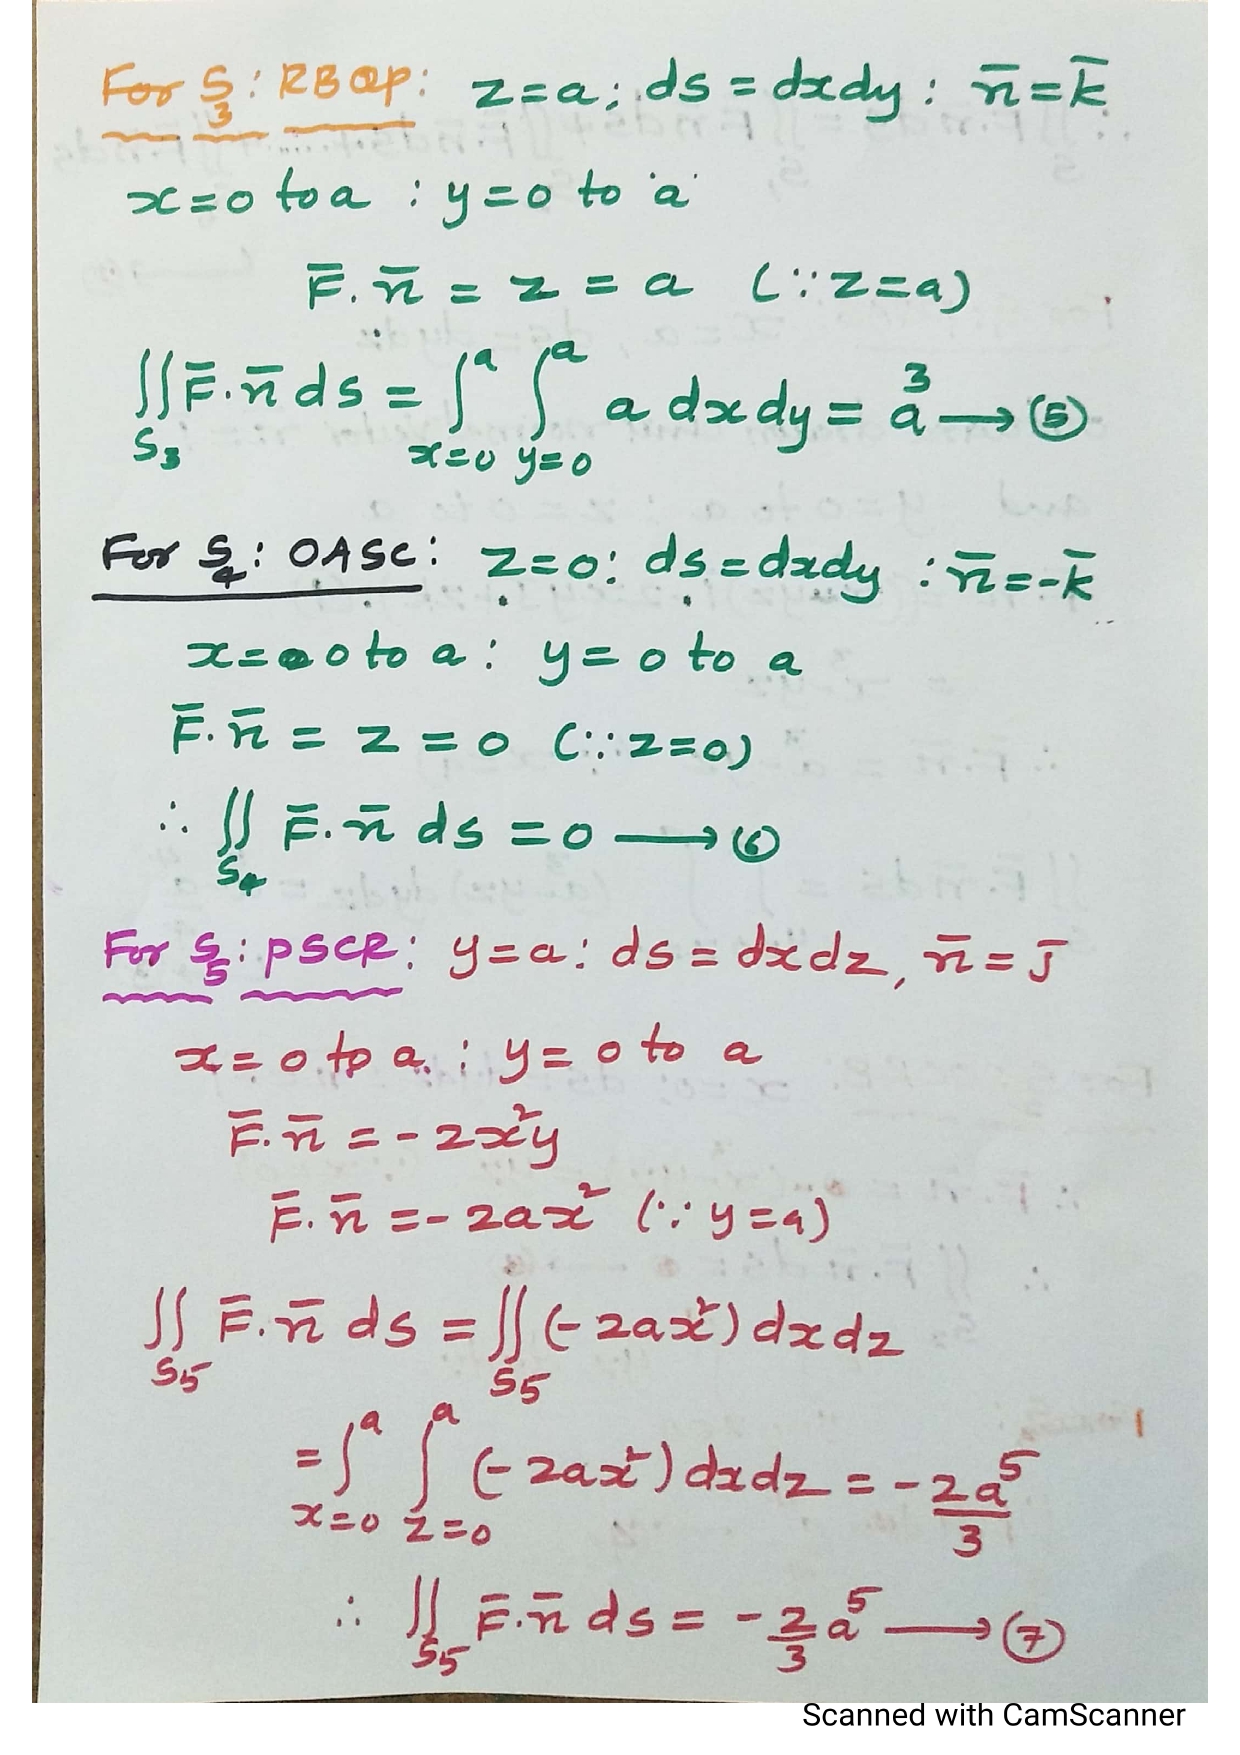 For S₃: RBQP: z=a; ds = dxdy : n̄ = k̄
x=0 to a : y=0 to a
F̄.n̄ = z = a (∵z=a)
∬_{S₃} F̄.n̄ ds = ∫_{x=0}^{a} ∫_{y=0}^{a} a dxdy = a³ → (5)
For S₄: OASC: z=0: ds=dxdy : n̄=-k̄
x=0 to a: y=0 to a
F̄.n̄ = z = 0 (∵z=0)
∴ ∬_{S₄} F̄.n̄ ds = 0 → (6)
For S₅: PSCR: y=a: ds=dxdz, n̄ = j̄
x=0 to a : y=0 to a
F̄.n̄ = -2x²y
F̄.n̄ = -2ax² (∵ y=a)
∬_{S₅} F̄.n̄ ds = ∬_{S₅} (-2ax²) dxdz
= ∫_{x=0}^{a} ∫_{z=0}^{a} (-2ax²) dxdz = -2a⁵/3
∴ ∬_{S₅} F̄.n̄ ds = -2/3 a⁵ → (7)
Scanned with CamScanner